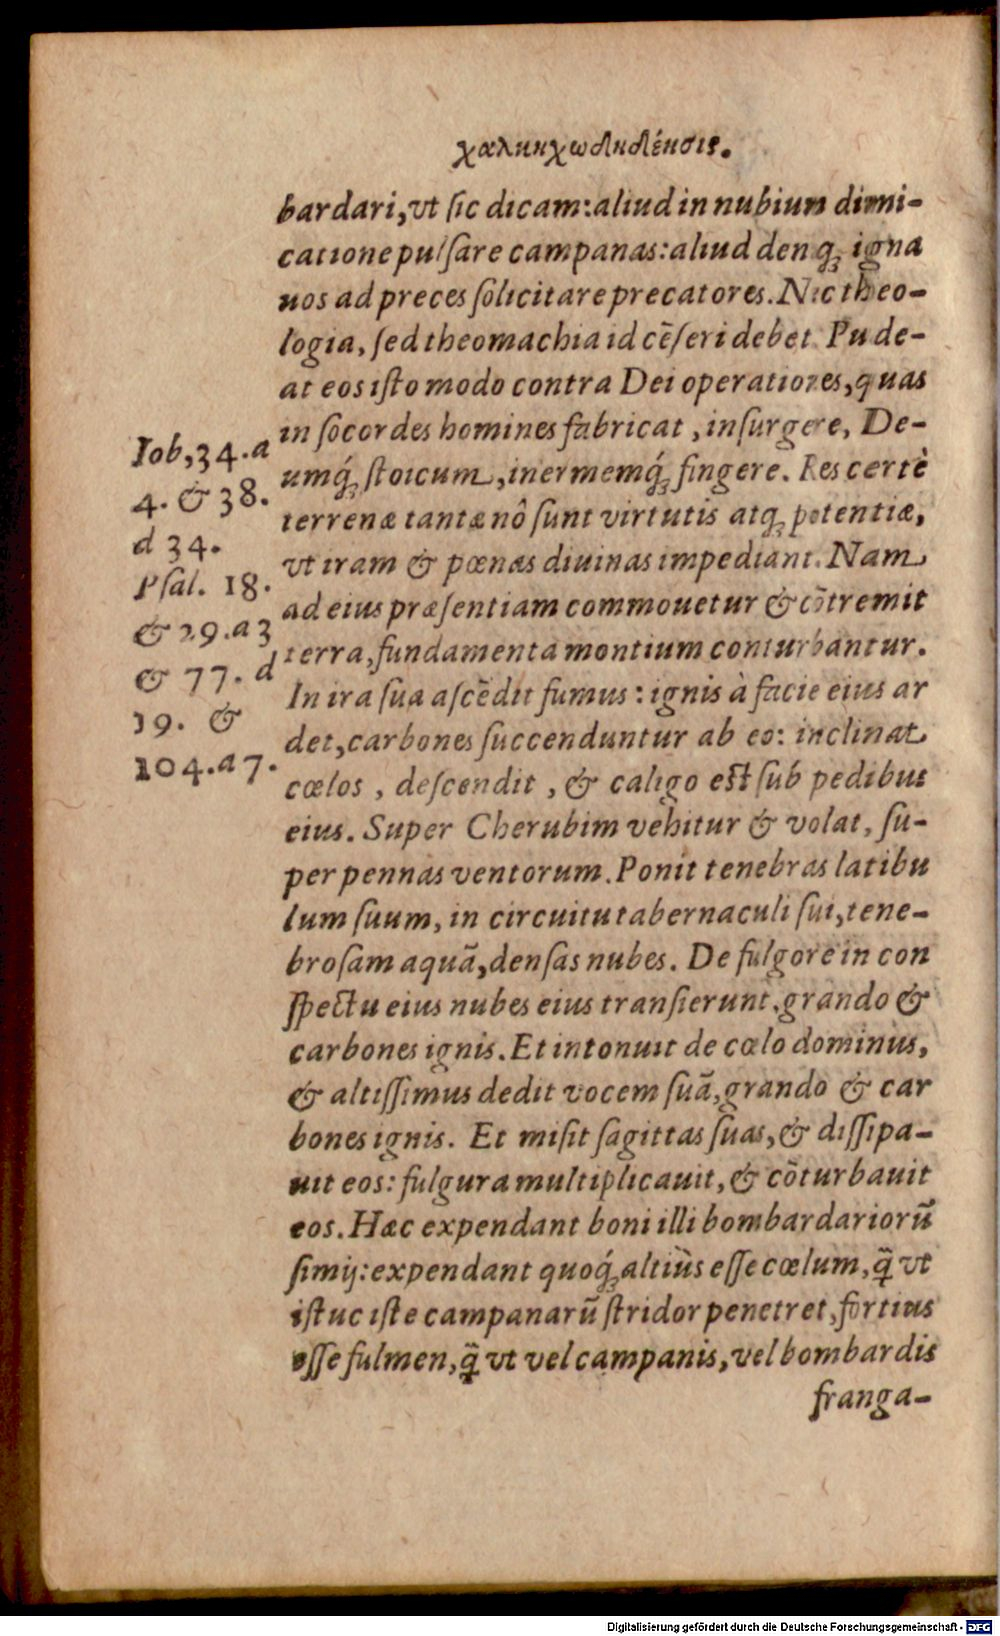 χαλκηχωδηδένσις.
bardari, vt ſic dicam: aliud in nubium dimi-
catione pulſare campanas: aliud denq; igna
uos ad preces ſolicitare precatores. Nec theo-
logia, ſed theomachia id cēſeri debet. Pude-
at eos iſto modo contra Dei operationes, quas
in ſocordes homines fabricat, inſurgere, De-
umq́; ſtoicum, inermemq́; fingere. Res certè
terrenæ tantæ nô ſunt virtutis atq; potentiæ,
vt iram & pœnas diuinas impediant. Nam
ad eius præſentiam commouetur & cõtremit
terra, fundamenta montium conturbantur.
In ira ſua aſcẽdit fumus: ignis à facie eius ar
det, carbones ſuccenduntur ab eo: inclinat
cœlos, deſcendit, & caligo eſt ſub pedibus
eius. Super Cherubim vehitur & volat, ſu-
per pennas ventorum. Ponit tenebras latibu
lum ſuum, in circuitu tabernaculi ſui, tene-
broſam aquã, denſas nubes. De fulgore in con
ſpectu eius nubes eius tranſierunt, grando &
carbones ignis. Et intonuit de cœlo dominus,
& altiſſimus dedit vocem ſuã, grando & car
bones ignis. Et miſit ſagittas ſuas, & diſſipa-
uit eos: fulgura multiplicauit, & cõturbauit
eos. Hæc expendant boni illi bombardariorũ
ſimij: expendant quoq́; altiùs eſſe cœlum, q̃ vt
iſtuc iſte campanarũ ſtridor penetret, fortius
eſſe fulmen, q̃ vt vel campanis, vel bombardis
franga-
Iob, 34. a
4. & 38.
d 34.
Pſal. 18.
& 29. a 3
& 77. d
19. &
104. a 7.
Digitalisierung gefördert durch die Deutsche Forschungsgemeinschaft - DFG